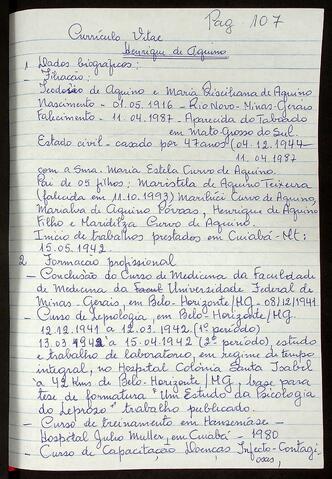 Pag 107
Currículo Vitae
Henrique de Aquino
1. Dados biográficos:
- Filiação:
Teodósio de Aquino e Maria Disciliana de Aquino
Nascimento - 01.05.1916 - Rio Novo - Minas-Gerais
Falecimento - 11.04.1987 - Aparecida do Taboado
em Mato Grosso do Sul.
Estado civil - casado por 47 anos (04.12.1944-
11.04.1987
com a Snra. Maria Estela Curvo de Aquino.
Pai de 05 filhos; Maristila de Aquino Teixeira
(falecida em 11.10.1993) Mariluci Curvo de Aquino,
Marialva de Aquino Póvoas, Henrique de Aquino
Filho e Maridelza Curvo de Aquino.
Início de trabalhos prestados em Cuiabá - Mt:
15.05.1942.
2. Formação profissional
- Conclusão do Curso de Medicina da Faculdade
de Medicina da Universidade Federal de
Minas-Gerais, em Belo-Horizonte/MG - 08/12/1941
- Curso de Leprologia, em Belo-Horizonte/MG.
12.12.1941 a 12.03.1942. (1º período)
13.03.1942 a 15.04.1942 (2º período), estudo
e trabalho de laboratório, em regime de tempo
integral, no Hospital Colônia Santa Isabel
a 42 Kms de Belo-Horizonte/MG, base para
tese de formatura "Um Estudo da Psicologia
do Leproso" trabalho publicado.
- Curso de treinamento em Hanseníase -
Hospital Julio Muller, em Cuiabá - 1980
- Curso de Capacitação Doenças Infecto-Contagi
osas,